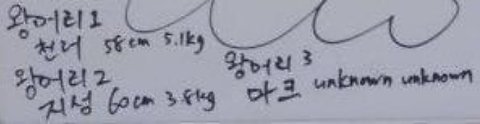 왕어리 1
천너 58cm 5.1kg
왕어리 2
지성 60cm 3.8kg
왕어리 3
마크 unknown unknown